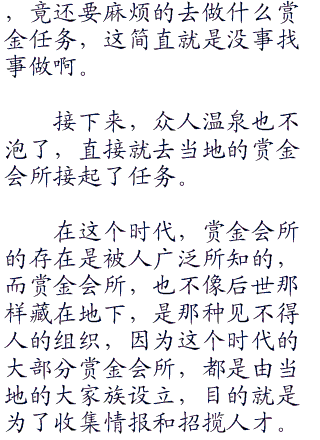 ，竟还要麻烦的去做什么赏
金任务，这简直就是没事找
事做啊。
接下来，众人温泉也不
泡了，直接就去当地的赏金
会所接起了任务。
在这个时代，赏金会所
的存在是被人广泛所知的，
而赏金会所，也不像后世那
样藏在地下，是那种见不得
人的组织，因为这个时代的
大部分赏金会所，都是由当
地的大家族设立，目的就是
为了收集情报和招揽人才。